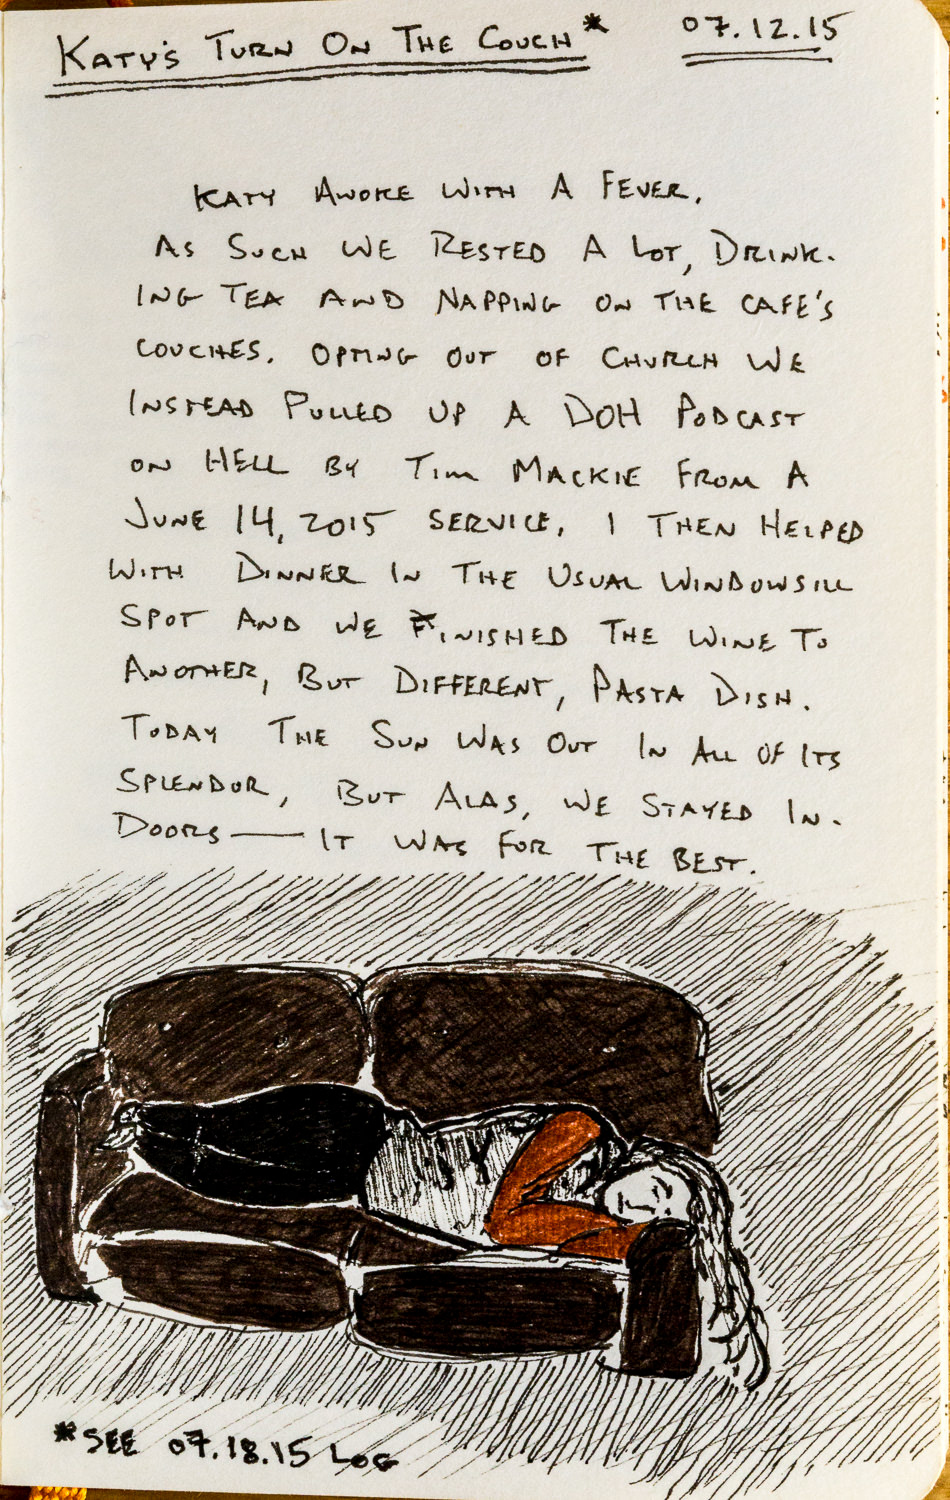 Katy's Turn On The Couch* 07.12.15
Katy Awoke With A Fever.
As Such We Rested A Lot, Drink-
ing Tea And Napping On The Cafe's
Couches. Opting Out Of Church We
Instead Pulled Up A DOH Podcast
On Hell By Tim Mackie From A
June 14, 2015 Service. I Then Helped
With Dinner In The Usual Windowsill
Spot And We Finished The Wine To
Another, But Different, Pasta Dish.
Today The Sun Was Out In All Of Its
Splendor, But Alas, We Stayed In-
Doors — It Was For The Best.
*See 07.18.15 Log